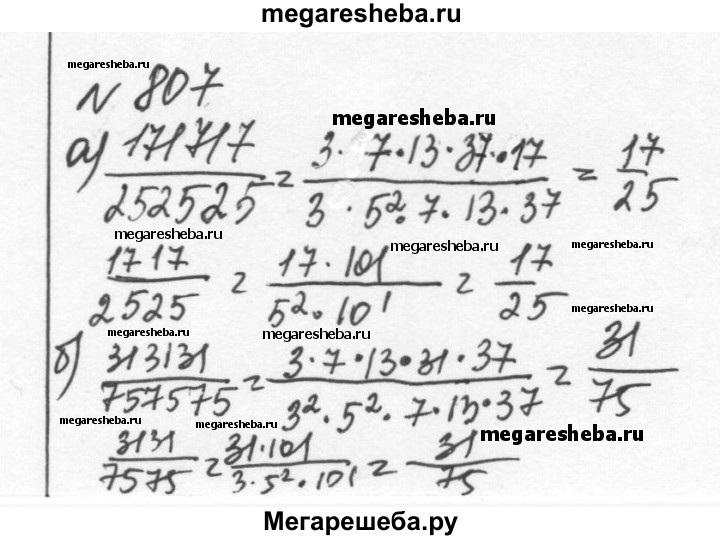 megaresheba.ru
megaresheba.ru
N 807
megaresheba.ru
а) 171717/252525 = 3·7·13·37·17/3·5²·7·13·37 = 17/25
megaresheba.ru megaresheba.ru megaresheba.ru
1717/2525 = 17·101/5²·101 = 17/25
megaresheba.ru
megaresheba.ru megaresheba.ru
б) 313131/757575 = 3·7·13·31·37/3²·5²·7·13·37 = 31/75
megaresheba.ru megaresheba.ru megaresheba.ru
3131/7575 = 31·101/3·5²·101 = 31/75
Мегарешеба.ру